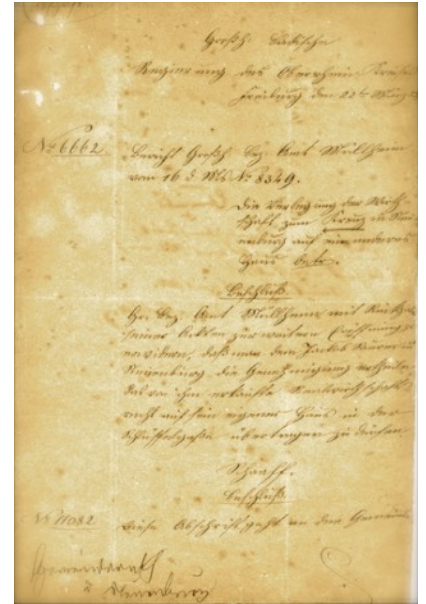 Großh. Badische
Regierung des Oberrhein Kreises
Freiburg den 22ten März
No 6662. Bericht Großh. Bez. Amt Müllheim
vom 16 d. Mts No 8349.
die Verlegung der Wirth-
schaft zum Kreuz in Neu-
enburg auf ein anderes
Haus betr.
Beschluß
Gr. Bez. Amt Müllheim mit
seiner Akten zur weitern Eröffnung zu
erwidern, daß man dem Jacob in
Neuenburg die Genehmigung ertheile,
das von ihm erkaufte Realwirthschafts-
recht auf sein eigenes Haus in der
übertragen zu dürfen.
Schaaff.
Beschluß.
No 11082 diese Abschrift geht an den Gemeinde
Gemeinderath
Neuenburg